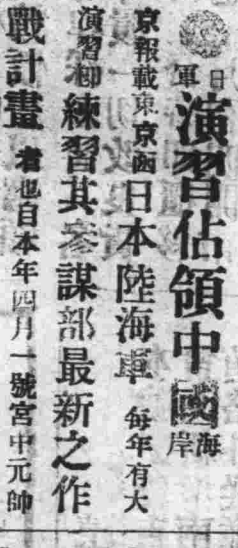 日軍演習佔領中國海岸
京報載東京函日本陸海軍每年有大
演習卽練習其參謀部最新之作
戰計畫者也自本年四月一號宮中元帥